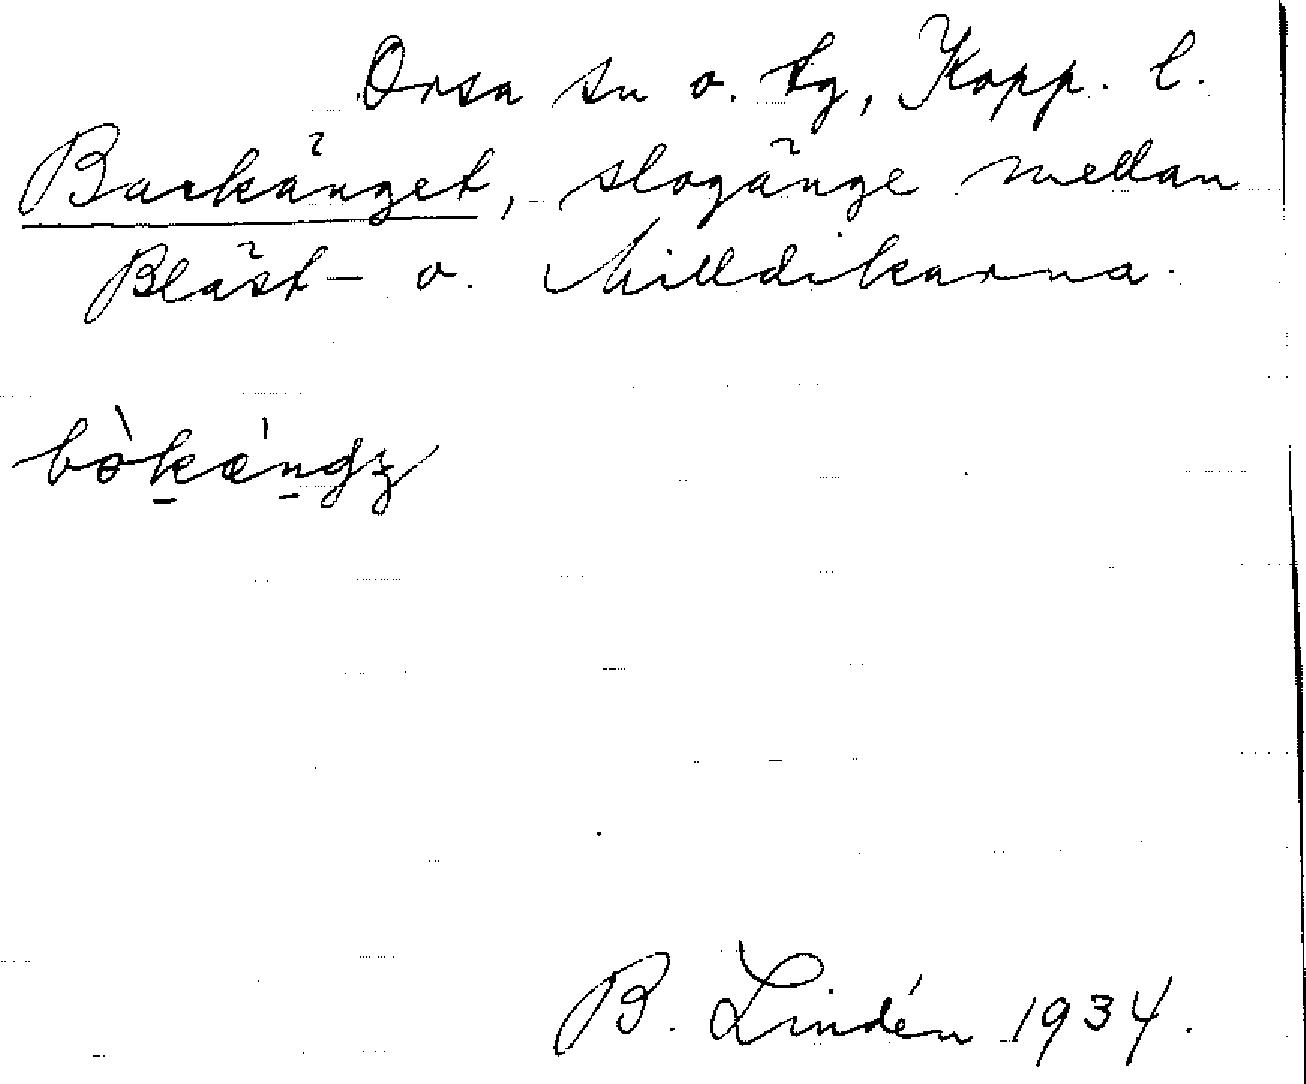 Orsa sn o. tg, Kopp. l.
Backänget, slogänge mellan
Bläst- o. Milldikarna.
B. Lindén 1934.